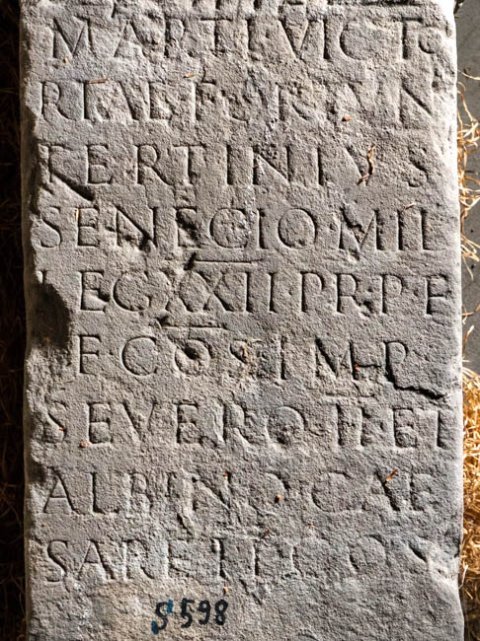 MARTI VICTO
RIAE FORTVN
TERTINIVS
SENECIO·MIL
LEG XXII·PR·P·F
F·COS IMP
SEVERO·II·ET
ALBINO·CAE
SARE II COS
S 598